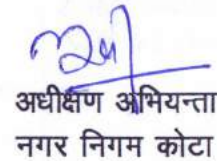 अधीक्षण अभियन्ता
नगर निगम कोटा